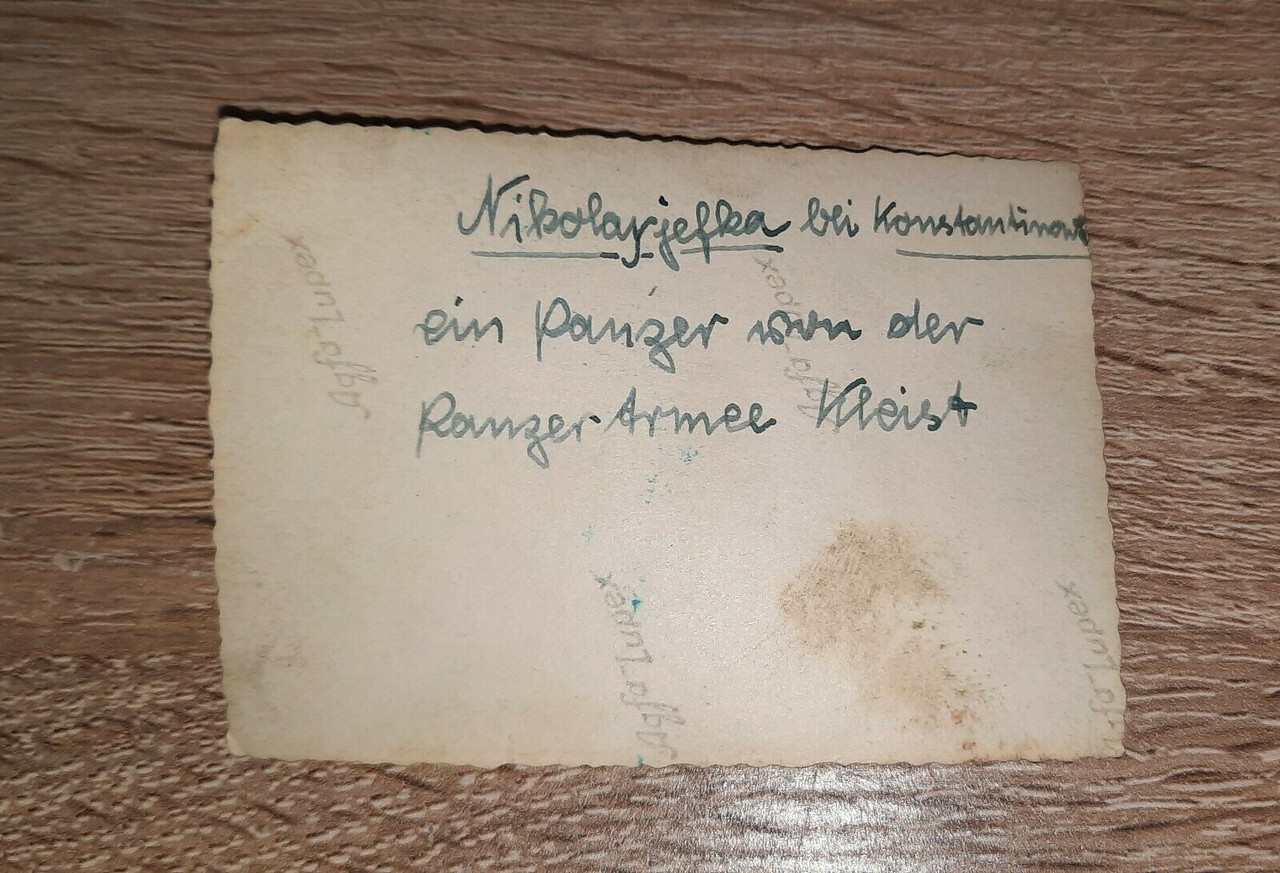 Nikolajefka bei Konstantinow
ein Panzer von der
Panzer Armee Kleist
Agfa-Lupex
Agfa-Lupex
Agfa-Lupex
fa-Lupex